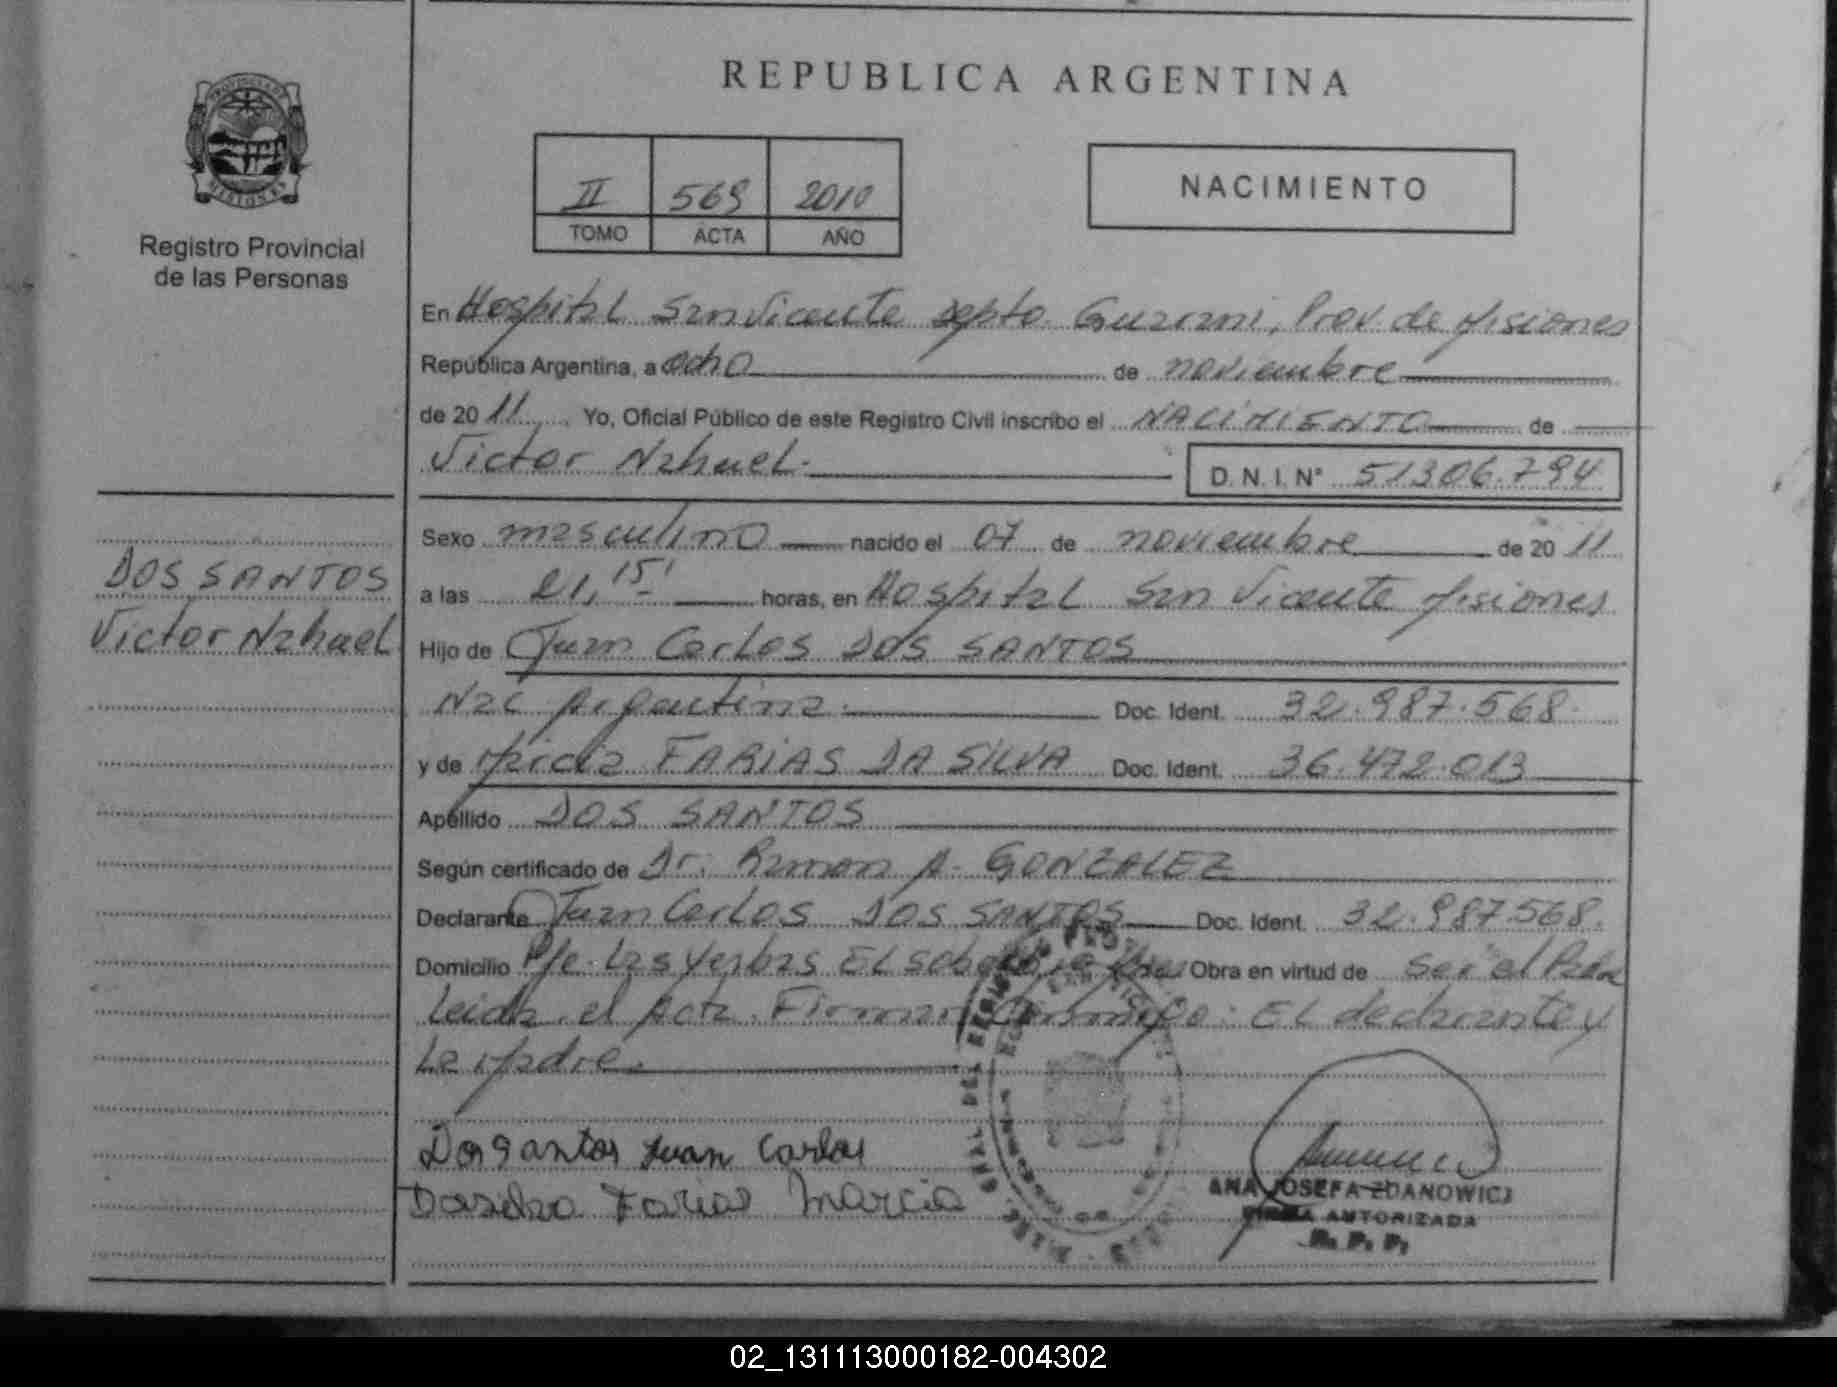 PROVINCIA DE
MISIONES
Registro Provincial
de las Personas
DOS SANTOS
Victor Nahuel
REPUBLICA ARGENTINA
II 569 2010
TOMO ACTA AÑO
NACIMIENTO
En Hospital San Vicente Depto Guarani, Prov. de Misiones
República Argentina, a ocho de noviembre
de 2011 Yo, Oficial Público de este Registro Civil inscribo el NACIMIENTO de
Victor Nahuel. D. N. I. N° 51306.794
Sexo masculino nacido el 07 de noviembre de 2011
a las 21,15' horas, en Hospital San Vicente Misiones
Hijo de Juan Carlos DOS SANTOS
Nac Argentina. Doc. Ident. 32.987.568.
y de FARIAS DA SILVA Doc. Ident. 36.472.013
Apellido DOS SANTOS
Según certificado de Dr. Ramon A. GONZALEZ
Declarante Juan Carlos DOS SANTOS Doc. Ident. 32.987.568.
Domicilio Pje. Las Yerbas El Obra en virtud de ser el Padre
Leida el Acta Firman conmigo: El declarante y
La Madre.
Dos santos Juan Carlos
Dasilva Farias Marcia
ANA JOSEFA ZDANOWICZ
FIRMA AUTORIZADA
R. P. P.
02_131113000182-004302